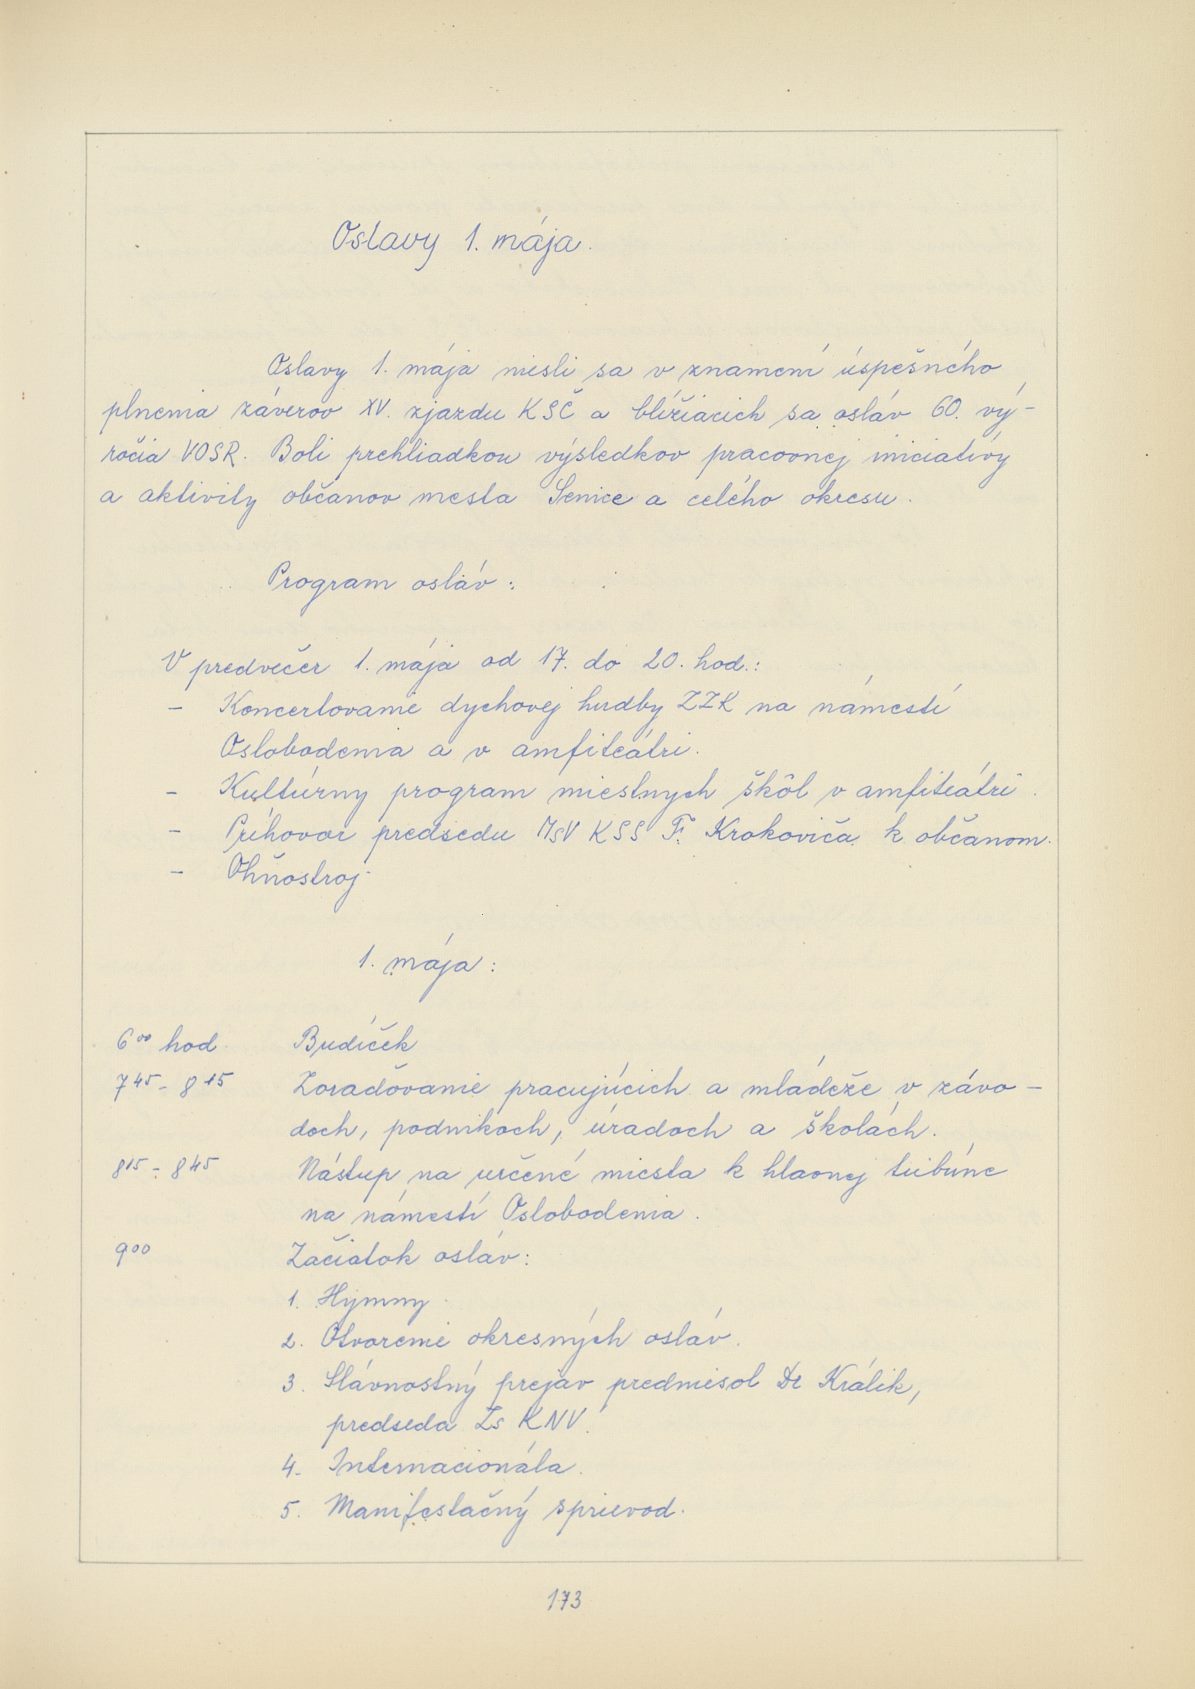 Oslavy 1. mája.
Oslavy 1. mája niesli sa v znamení úspešného
plnenia záverov XV. zjazdu KSČ a blížiacich sa osláv 60. vý-
ročia VOSR. Boli prehliadkou výsledkov pracovnej iniciatívy
a aktivity občanov mesta Senice a celého okresu.
Program osláv:
V predvečer 1. mája od 17. do 20. hod.:
- Koncertovanie dychovej hudby ZZK na námestí
Oslobodenia a v amfiteátri.
- Kultúrny program miestnych škôl v amfiteátri.
- Príhovor predsedu MsV KSS F. Krokoviča k občanom.
- Ohňostroj.
1. mája:
6⁰⁰ hod. Budíček
7⁴⁵ - 8¹⁵ Zoraďovanie pracujúcich a mládeže v závo-
doch, podnikoch, úradoch a školách.
8¹⁵ - 8⁴⁵ Nástup na určené miesta k hlavnej tribúne
na námestí Oslobodenia.
9⁰⁰ Začiatok osláv:
1. Hymny.
2. Otvorenie okresných osláv.
3. Slávnostný prejav predniesol Dr Králik,
predseda Zs KNV.
4. Internacionála.
5. Manifestačný sprievod.
173